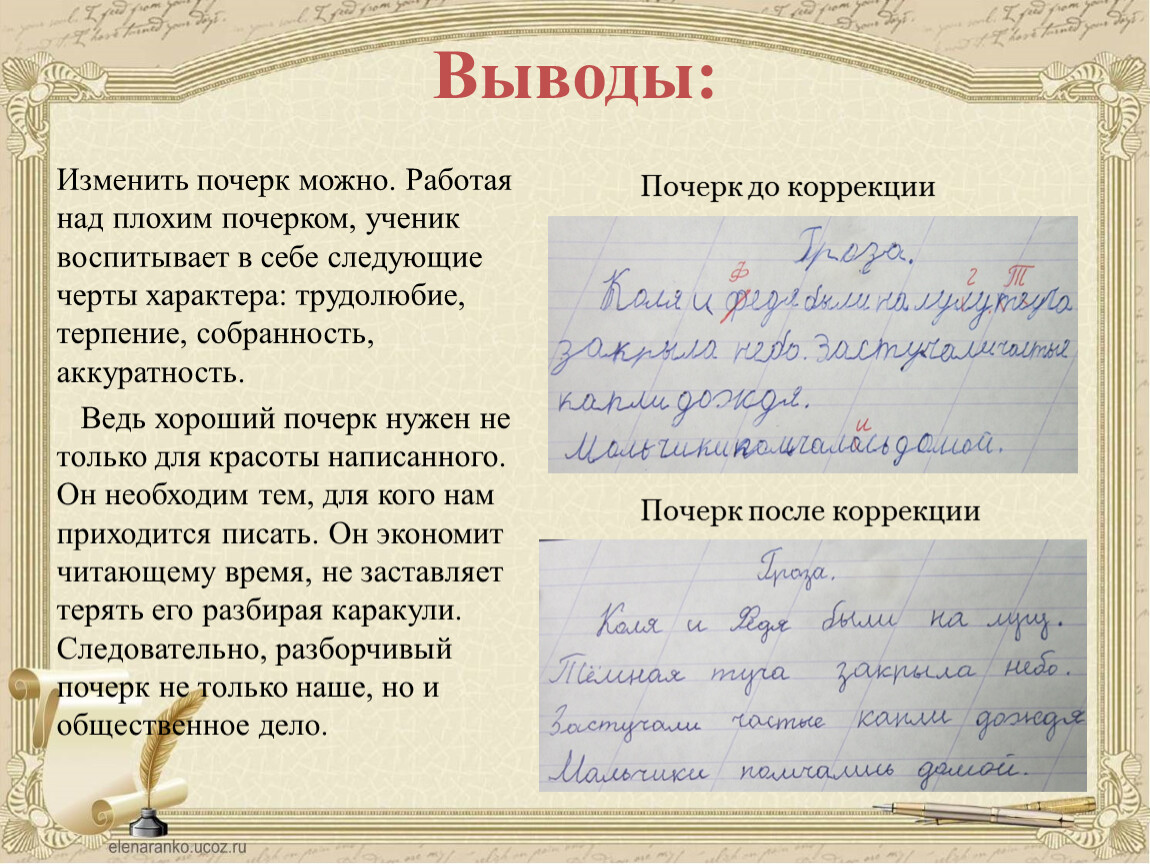 Выводы:
Изменить почерк можно. Работая
над плохим почерком, ученик
воспитывает в себе следующие
черты характера: трудолюбие,
терпение, собранность,
аккуратность.
Ведь хороший почерк нужен не
только для красоты написанного.
Он необходим тем, для кого нам
приходится писать. Он экономит
читающему время, не заставляет
терять его разбирая каракули.
Следовательно, разборчивый
почерк не только наше, но и
общественное дело.
Почерк до коррекции
Гроза.
Ф г Т
Коля и федя были на луху туча
закрыла небо. Застучали частые
капли дождя.
и
Мальчики помчались домой.
Почерк после коррекции
Гроза.
Коля и Федя были на лугу.
Тёмная туча закрыла небо.
Застучали частые капли дождя
Мальчики помчались домой.
elenaranko.ucoz.ru